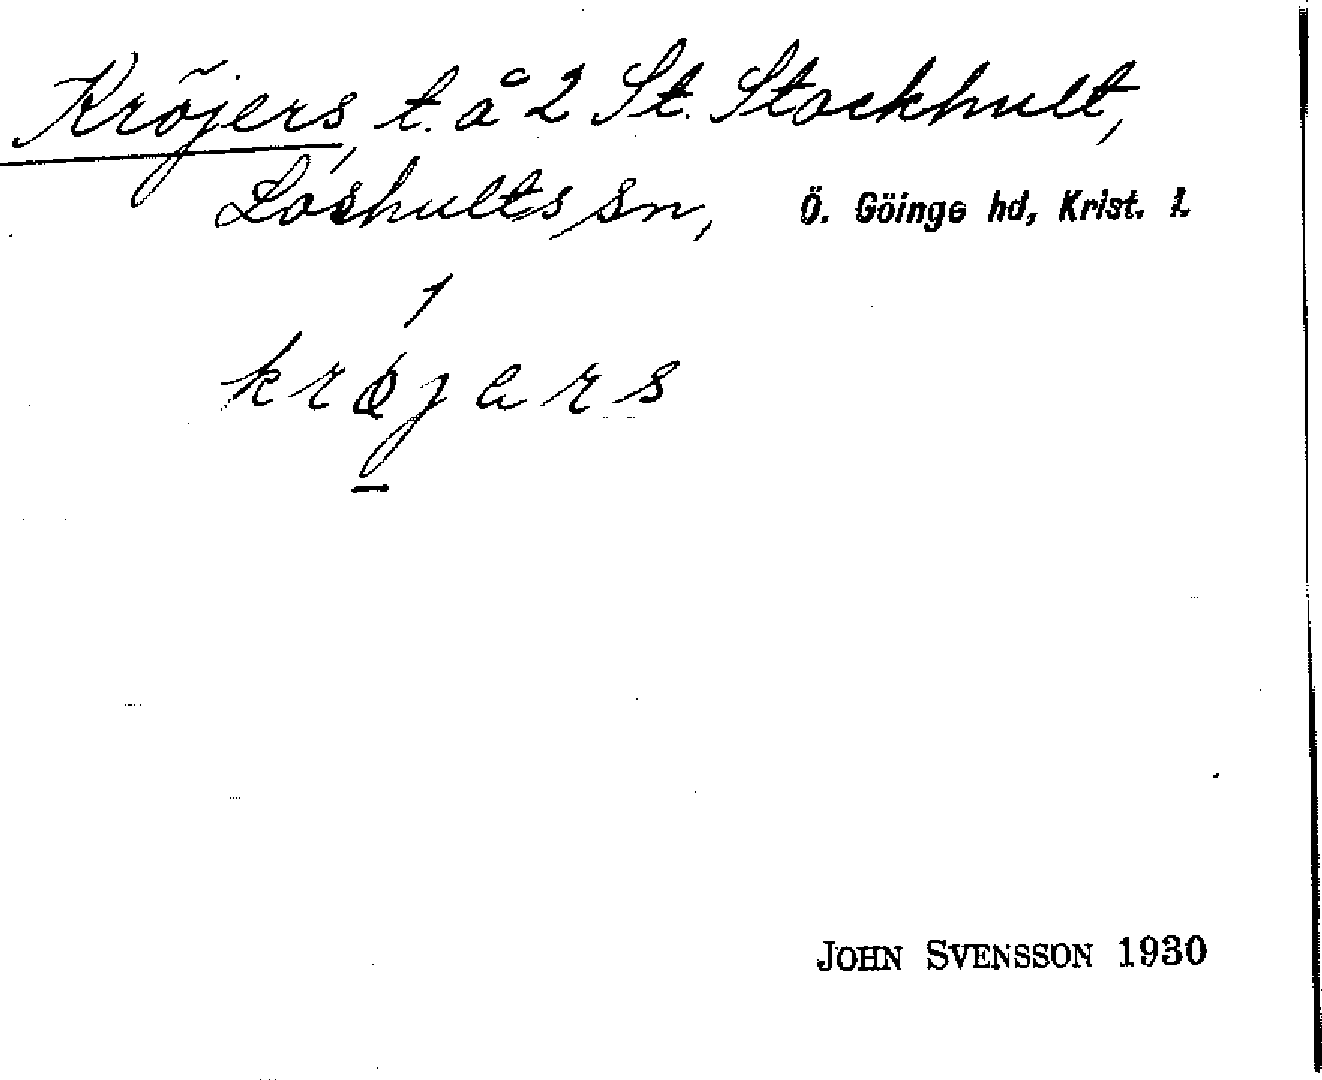 Kröjers, t. å 2 St. Stockhult,
Loshults sn, Ö. Göinge hd, Krist. l.
1
krøjars
JOHN SVENSSON 1930